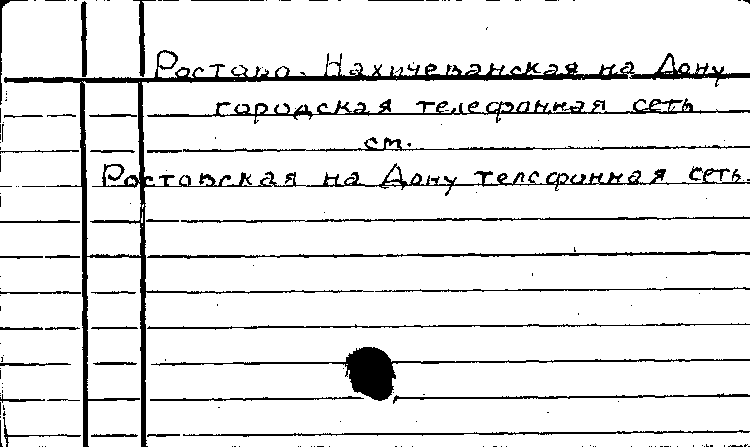 Ростово-Нахичеванская на Дону
городская телефонная сеть
см.
Ростовская на Дону телефонная сеть.